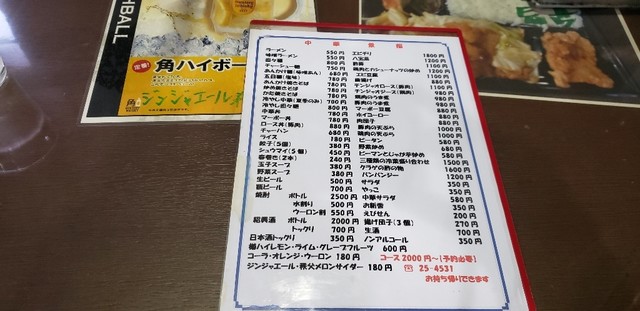 HBALL
角ハイボー
ジンジャエール
ラーメン 550円
味噌ラーメン 550円
800円
チャーシュー麺 750円
あんかけ麺(醤味あん) 680円
五目麺(塩味)
あんかけ焼きそば
炒め焼きそば
かた焼きそば
冷やし中華(夏季のみ) 700円
中華丼
マーボー丼
ロース丼(豚肉) 880円
チャーハン 680円
ライス 180円
餃子(5個) 380円
シュウマイ(5個) 450円
春巻き(2本) 240円
玉子スープ 380円
野菜スープ 380円
生ビール 500円
瓶ビール 700円
焼酎 ボトル 2500円
水割り 500円
ウーロン割 550円
紹興酒 ボトル 2000円
とっくり 700円
日本酒とっくり 350円
樽ハイレモン・ライム・グレープフルーツ 600円
コーラ・オレンジ・ウーロン 180円
ジンジャエール・秩父メロンサイダー 180円
エビチリ 1800円
八宝菜 1200円
酢豚 1100円
鶏肉とカシューナッツの炒め 1200円
エビ豆腐 1100円
麻婆豆腐
チンジャオロース(豚肉) 1100円
ホイコーロー 880円
肉団子 880円
豚肉の天ぷら 1000円
鶏肉の天ぷら 1000円
ピータン 580円
野菜炒め 680円
ピーマンとじゃが芋炒め 580円
三種類の冷菜盛り合わせ 1500円
クラゲの酢の物 1600円
バンバンジー 1200円
サラダ 350円
やっこ 350円
中華サラダ 580円
お新香 350円
えびせん 200円
揚げ団子(3個) 270円
生酒 700円
ノンアルコール 350円
コース2000円~[予約必要]
☎ 25-4531
お持ち帰りできます